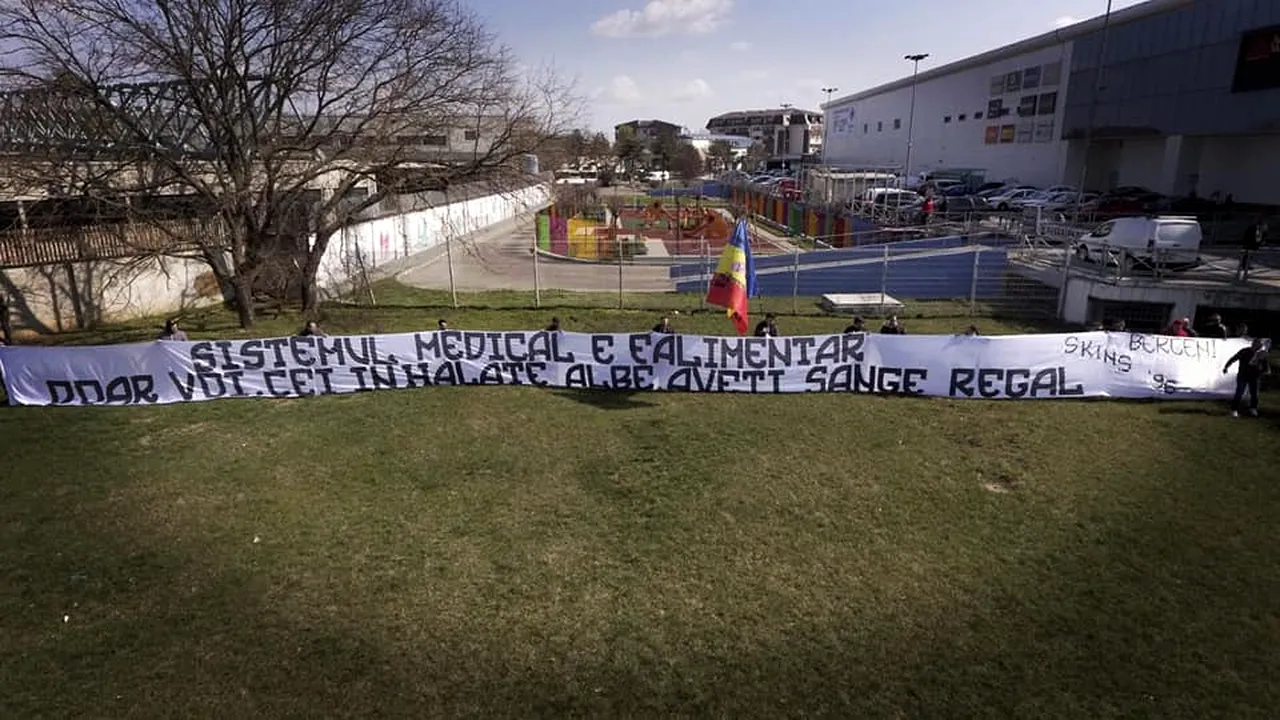 SISTEMUL MEDICAL E FALIMENTAR
DOAR VOI.CEI IN HALATE ALBE AVETI SANGE REGAL
BERCENI
SKINS '96